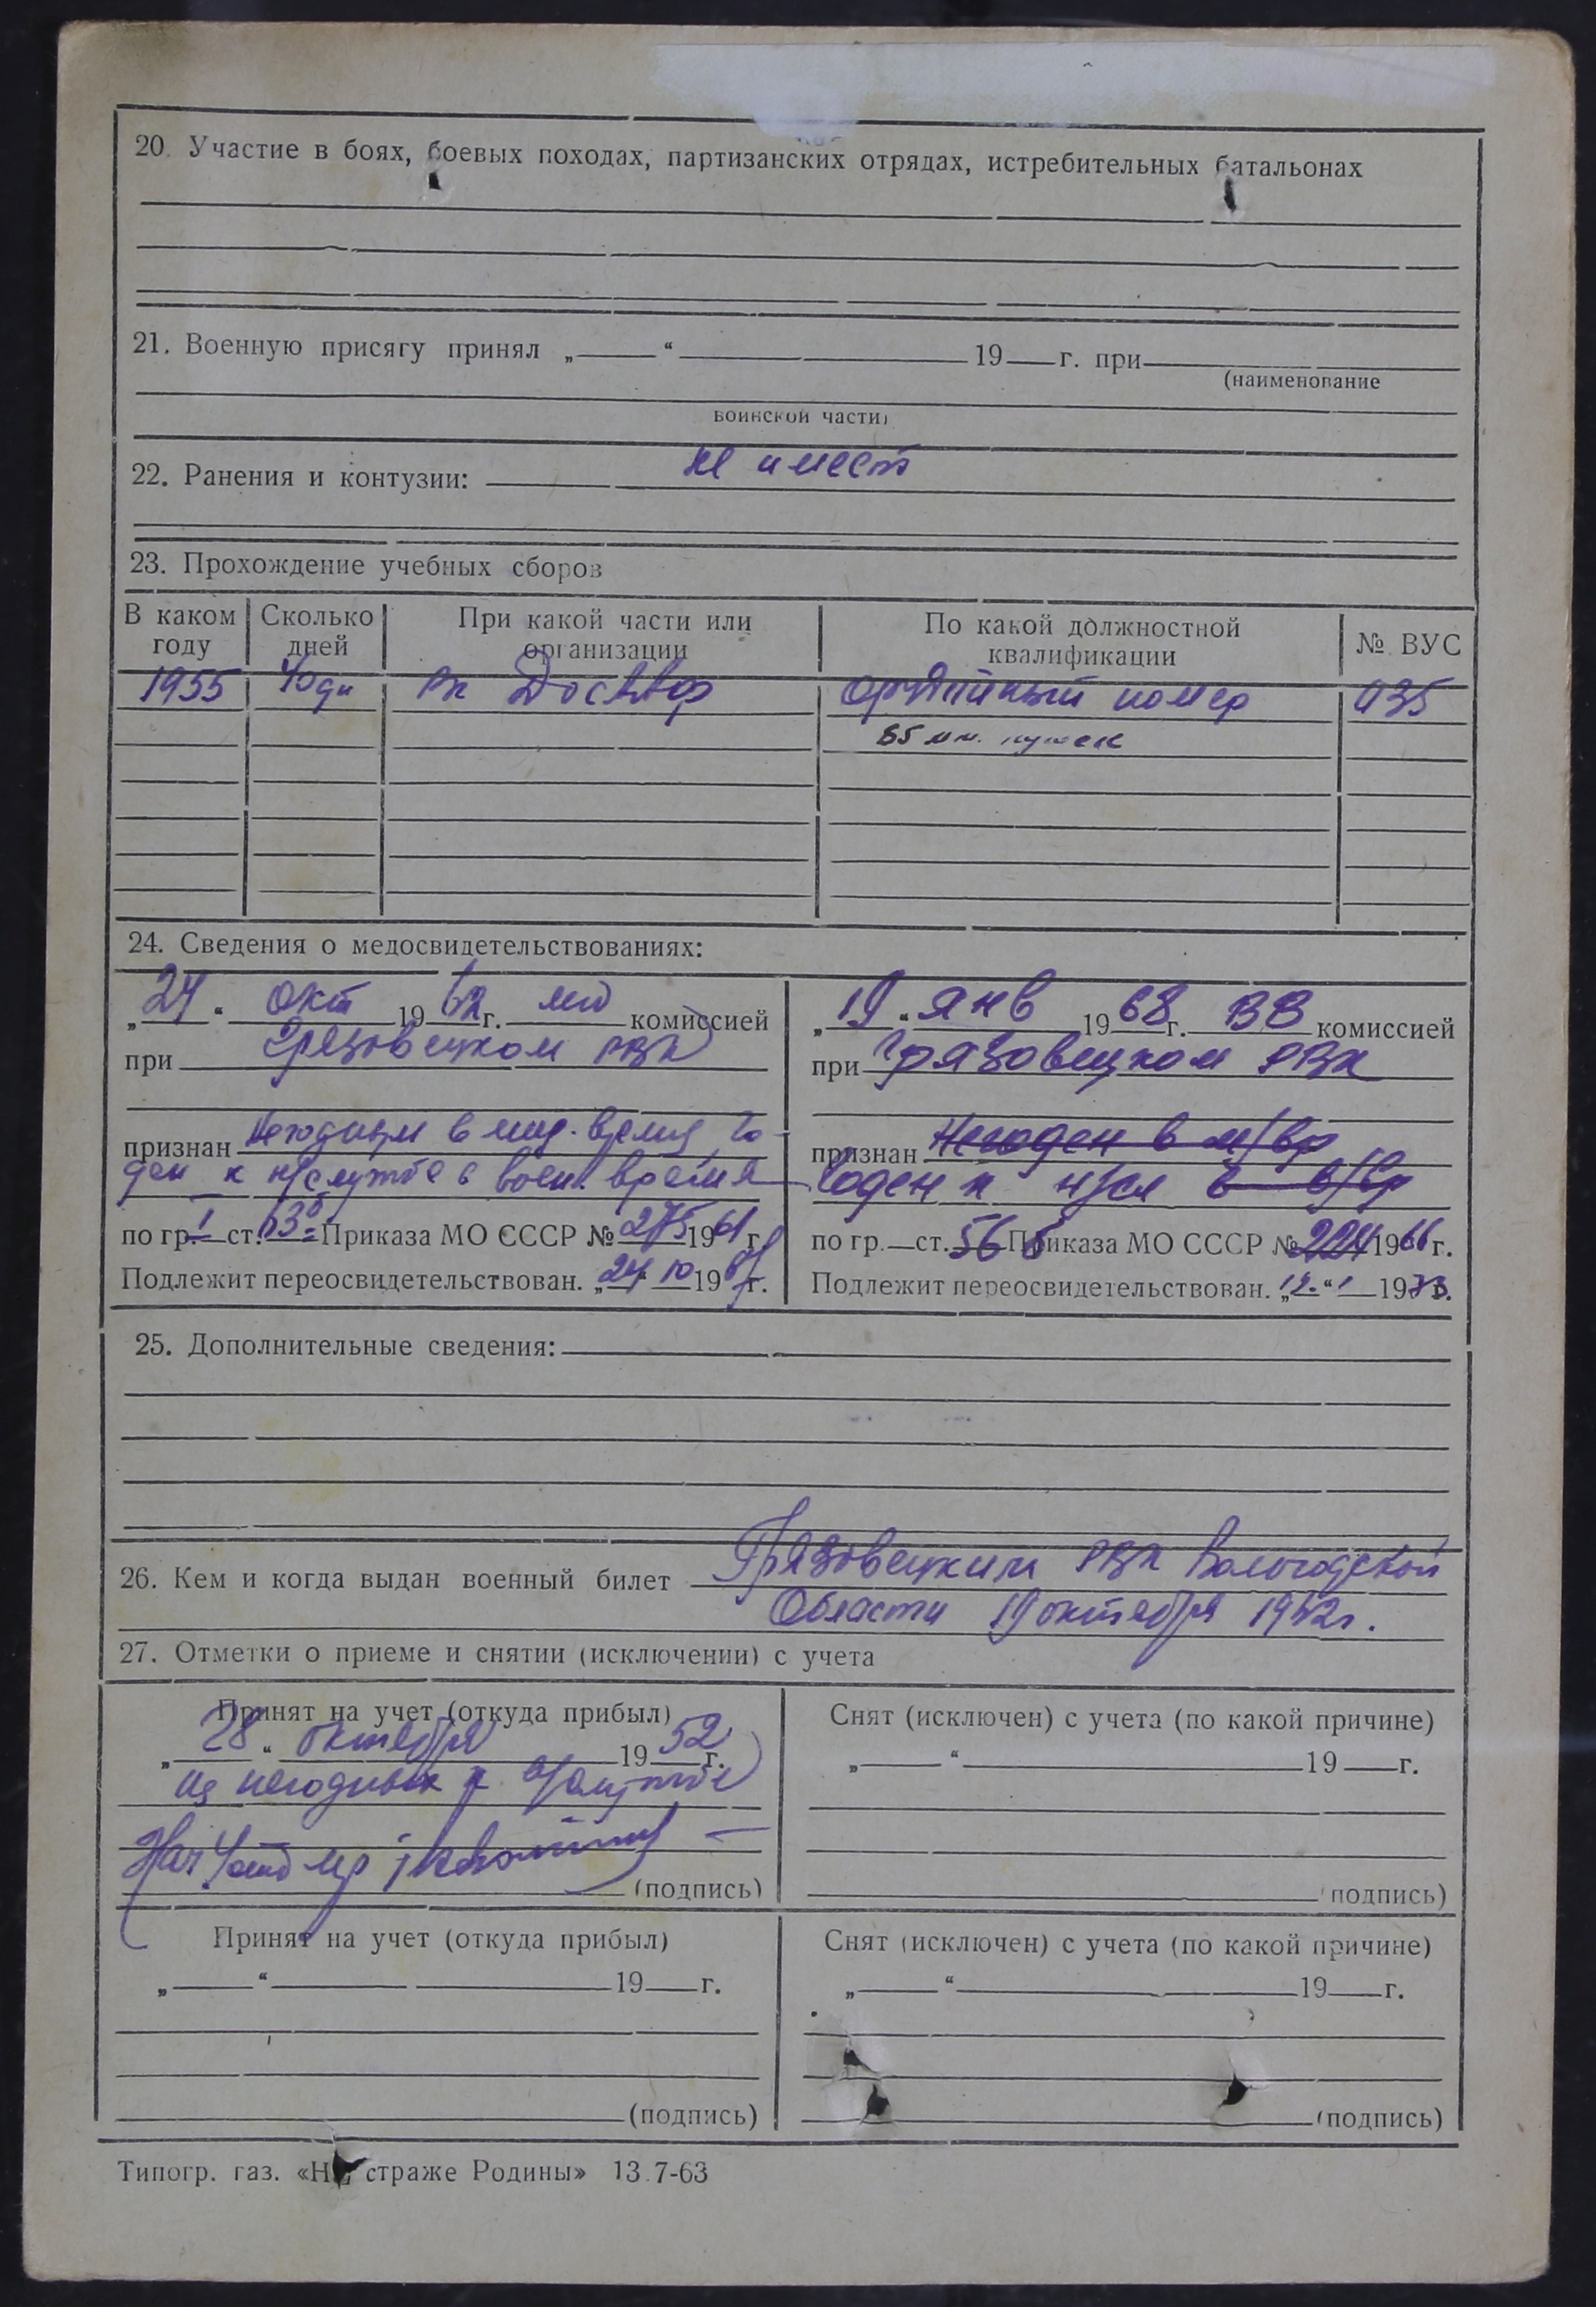 20. Участие в боях, боевых походах, партизанских отрядах, истребительных батальонах
21. Военную присягу принял „ “ 19 г. при
(наименование
воинской части)
22. Ранения и контузии: не имеет
23. Прохождение учебных сборов
В каком году Сколько дней При какой части или организации По какой должностной квалификации № ВУС
1955 40 дн орудийный номер 035
85 мм. пушек
24. Сведения о медосвидетельствованиях:
„24“ окт 1962 г. комиссией
при Грязовецком РВК
признан Негодным в мир. время, го-
ден к н/службе в воен. время
по гр. I ст. Приказа МО СССР № 275 1961 г.
Подлежит переосвидетельствован. „24“ 10 19 г.
„19“ янв 1968 г. ВВ комиссией
при Грязовецком РВК
признан Негоден в м/вр
Годен к н/сл в в/вр
по гр. ст. 56 б Приказа МО СССР № 224 1966 г.
Подлежит переосвидетельствован. 1973.
25. Дополнительные сведения:
26. Кем и когда выдан военный билет Грязовецким РВК Вологодской
Области 19 октября 1952 г.
27. Отметки о приеме и снятии (исключении) с учета
Принят на учет (откуда прибыл)
„28“ октября 1952 г.
из негодных к
(подпись)
Снят (исключен) с учета (по какой причине)
„ “ 19 г.
(подпись)
Принят на учет (откуда прибыл)
„ “ 19 г.
(подпись)
Снят (исключен) с учета (по какой причине)
„ “ 19 г.
(подпись)
Типогр. газ. «На страже Родины» 13.7-63